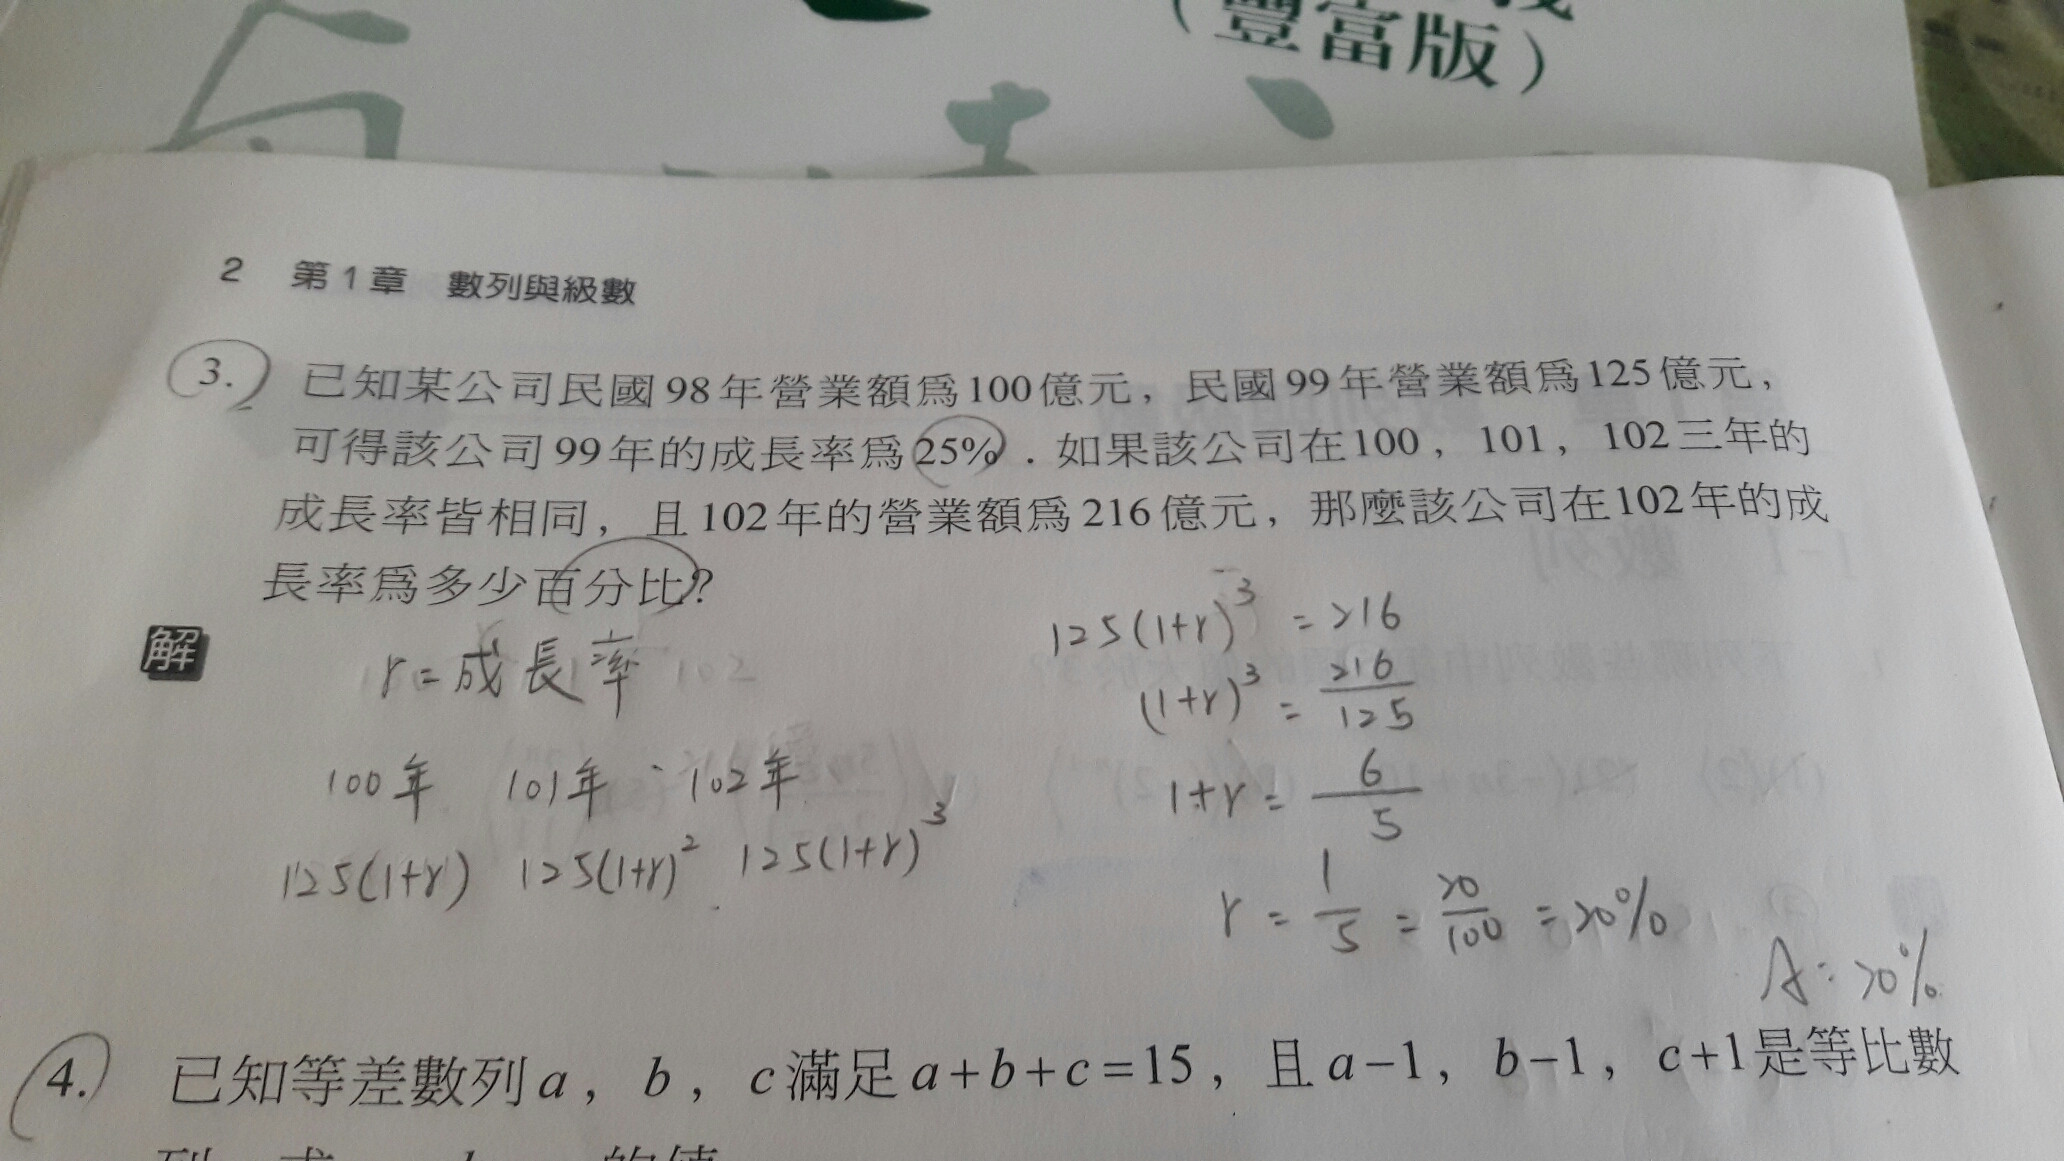 （豐富版）
2 第1章 數列與級數
3. 已知某公司民國98年營業額為100億元，民國99年營業額為125億元，
可得該公司99年的成長率為25%．如果該公司在100，101，102三年的
成長率皆相同，且102年的營業額為216億元，那麼該公司在102年的成
長率為多少百分比？
解
r=成長率
100年 101年 102年
125(1+r) 125(1+r)² 125(1+r)³
125(1+r)³ = 216
(1+r)³ = 216/125
1+r = 6/5
r = 1/5 = 20/100 = 20%
A: 20%
4. 已知等差數列a，b，c滿足a+b+c=15，且a−1，b−1，c+1是等比數